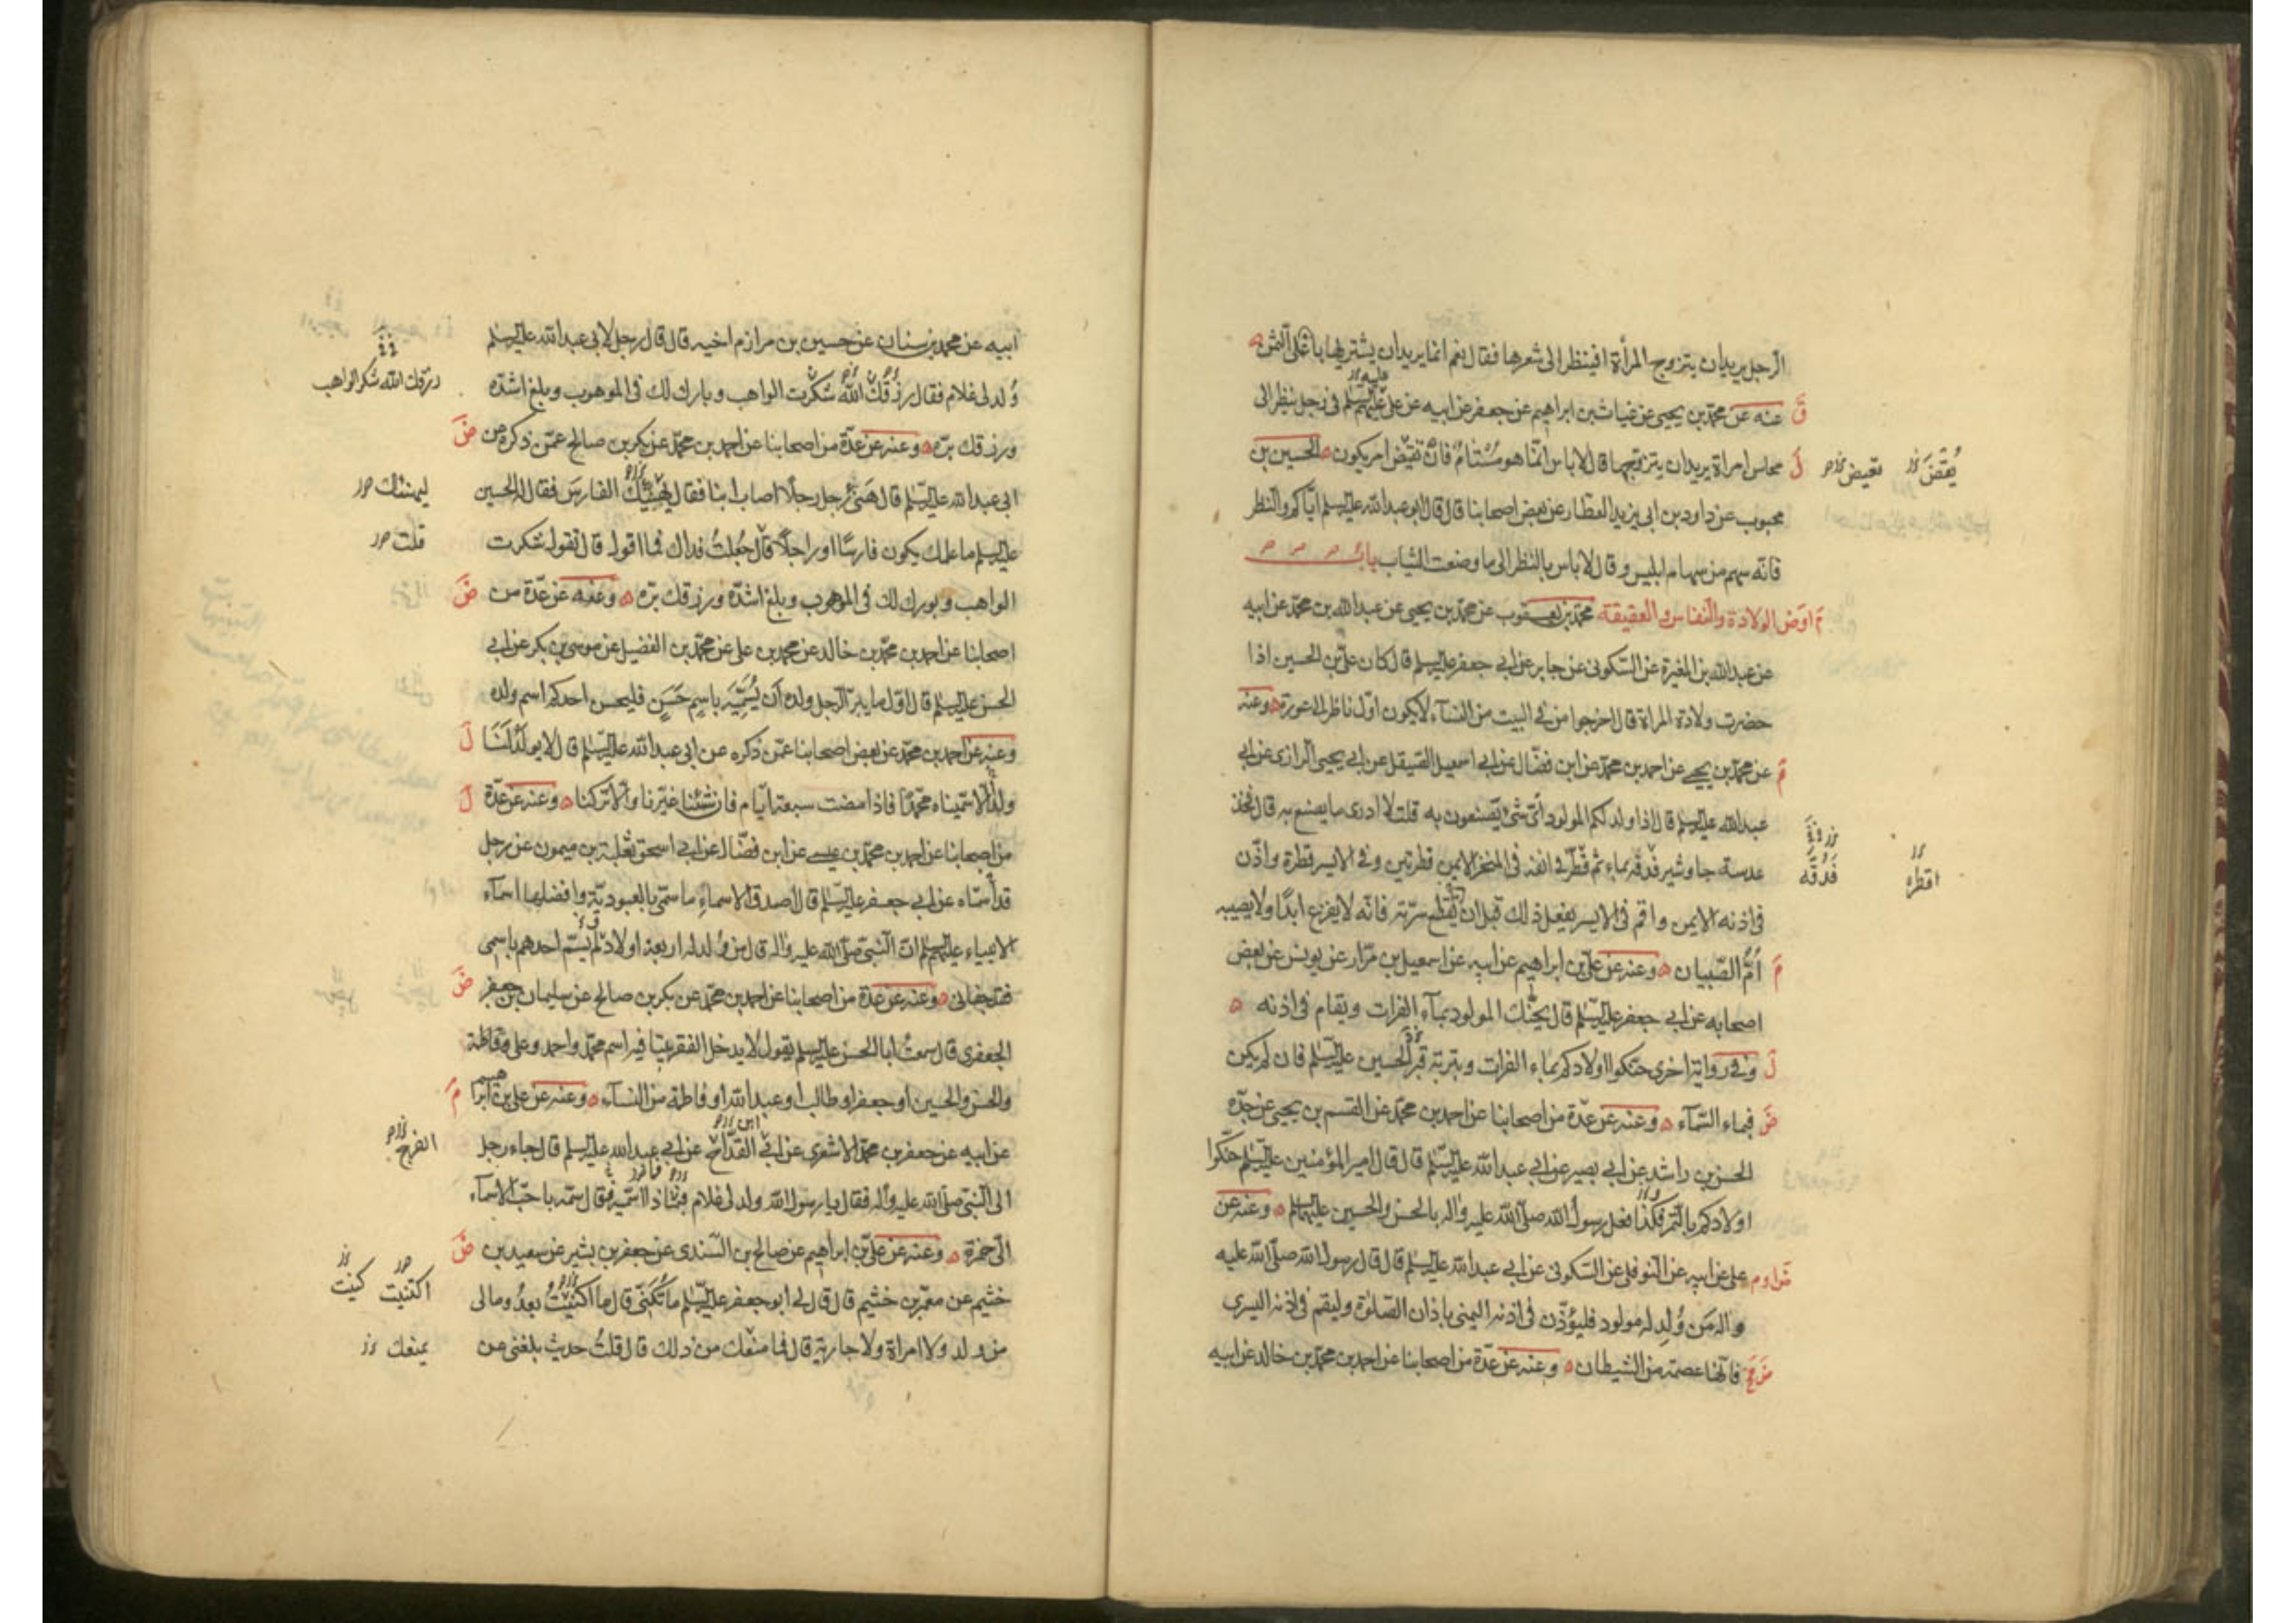 الرجل يريد ان يتزوج المرأة افينظر الى شعرها فقال نعم انما يريد ان يشتريها باغلى الثمن
عنه عن محمد بن يحيى عن غياث بن ابراهيم عن جعفر عن ابيه عن علي عليهم السلم في رجل ينظر الى
محاسن امراة يريد ان يتزوجها قال لا باس انما هو مستام فان تقيض امر يكون الحسين بن
محبوب عن داود بن ابي يزيد العطار عن بعض اصحابنا قال قال ابو عبد الله عليه السلم اياكم والنظر
فانه سهم من سهام ابليس وقال لا باس بالنظر الى ما وصفت الثياب باب
الولادة والنفاس والعقيقة محمد بن يعقوب عن محمد بن يحيى عن عبد الله بن محمد عن ابيه
عن عبد الله بن المغيرة عن السكوني عن جابر عن ابي جعفر عليه السلم قال كان علي بن الحسين اذا
حضرت ولادة المراة قال اخرجوا من في البيت من النساء لا يكون اول ناظر الى عورة وعنه
عن محمد بن يحيى عن احمد بن محمد عن ابن فضال عن ابي اسمعيل الصيقل عن ابي يحيى الرازي عن ابي
عبد الله عليه السلم قال اذا ولد لكم المولود اي شئ تصنعون به قلت لا ادري ما يصنع به قال فخذ
عدسة جاوشير فدقه بماء ثم قطر في انفه في المنخر الايمن قطرتين وفي الايسر قطرة واذن
في اذنه الايمن واقم في الايسر يفعل ذلك قبل ان تقطع سرته فانه لا يفزع ابدا ولا يصيبه
ام الصبيان وعنه عن علي بن ابراهيم عن ابيه عن اسمعيل بن مرار عن يونس عن بعض
اصحابه عن ابي جعفر عليه السلم قال يحنك المولود بماء الفرات ويقام في اذنه
وفي رواية اخرى حنكوا اولادكم بماء الفرات وبتربة قبر الحسين عليه السلم فان لم يكن
فبماء السماء وعنه عن عدة من اصحابنا عن احمد بن محمد عن القسم بن يحيى عن جده
الحسن بن راشد عن ابي بصير عن ابي عبد الله عليه السلم قال قال امير المؤمنين عليه السلم حنكوا
اولادكم بالتمر فكذا فعل رسول الله صلى الله عليه واله بالحسن والحسين عليهما السلم وعنه عن
علي عن ابيه عن النوفلي عن السكوني عن ابي عبد الله عليه السلم قال قال رسول الله صلى الله عليه
واله من ولد له مولود فليؤذن في اذنه اليمنى باذان الصلوة وليقم في اذنه اليسرى
فانها عصمة من الشيطان وعنه عن عدة من اصحابنا عن احمد بن محمد بن خالد عن ابيه
يقض تقيض
فدقه
اقطره
ابيه عن محمد بن سنان عن حسين بن مرازم اخيه قال قال رجل لابي عبد الله عليه السلم
ولد لي غلام فقال رزقك الله شكرت الواهب وبارك لك في الموهوب وبلغ اشده
ورزقك بره وعنه عن عدة من اصحابنا عن احمد بن محمد عن بكر بن صالح عمن ذكره عن
ابي عبد الله عليه السلم قال هنئ رجل رجلا اصاب ابنا فقال يهنيك الفارس فقال له الحسين
عليه السلم ما علمك يكون فارسا او راجلا قال جعلت فداك فما اقول قال تقول شكرت
الواهب وبورك لك في الموهوب وبلغ اشده ورزقك بره وعنه عن عدة من
اصحابنا عن احمد بن محمد بن خالد عن محمد بن علي عن محمد بن الفضيل عن موسى بن بكر عن ابي
الحسن عليه السلم قال اول ما يبر الرجل ولده ان يسميه باسم حسن فليحسن احدكم اسم ولده
وعنه عن احمد بن محمد عن بعض اصحابنا عمن ذكره عن ابي عبد الله عليه السلم قال لا يولد لنا
ولد الا سميناه محمدا فاذا مضت سبعة ايام فان شئنا غيرنا والا تركنا وعنه عن عدة
من اصحابنا عن احمد بن محمد بن عيسى عن ابن فضال عن ابي اسحق ثعلبة بن ميمون عن رجل
قد اسماه عن ابي جعفر عليه السلم قال اصدق الاسماء ما سمي بالعبودية وافضلها اسماء
الانبياء عليهم السلم ان النبي صلى الله عليه واله قال من ولد له اربعة اولاد لم يسم احدهم باسمي
فقد جفاني وعنه عن عدة من اصحابنا عن احمد بن محمد عن بكر بن صالح عن سليمان بن جعفر
الجعفري قال سمعت ابا الحسن عليه السلم يقول لا يدخل الفقر بيتا فيه اسم محمد واحمد وعلي وفاطمة
والحسن والحسين او جعفر او طالب او عبد الله او فاطمة من النساء وعنه عن علي بن ابراهيم
عن ابيه عن جعفر بن محمد الاشعري عن ابي القداح عن ابي عبد الله عليه السلم قال جاء رجل
الى النبي صلى الله عليه واله فقال يا رسول الله ولد لي غلام فماذا اسميه فقال سمه باحب الاسماء
الي حمزة وعنه عن علي بن ابراهيم عن صالح بن السندي عن جعفر بن بشير عن سعيد بن
خثيم عن معمر بن خثيم قال قال لي ابو جعفر عليه السلم ما تكنى قال ما اكتنيت بعد وما لي
من ولد ولا امراة ولا جارية قال فما منعك من ذلك قال قلت حديث بلغني عن
رزقك الله شكر الواهب
ليهنئك
قلت
الفرج
اكتنيت كنيت
يمنعك